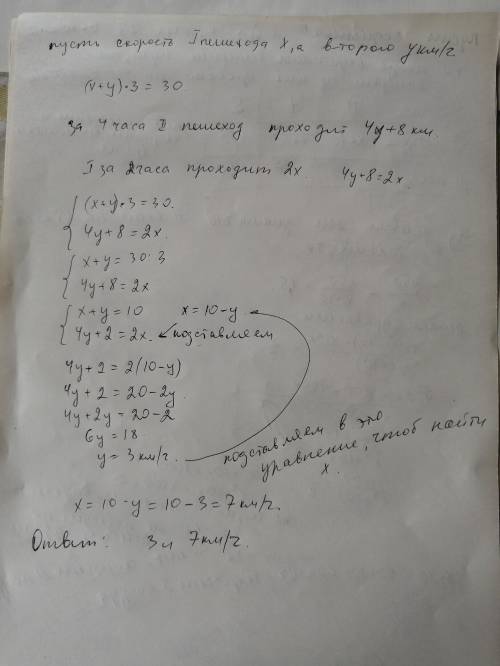 пусть скорость I пешехода x, а второго y км/ч
(x+y)·3 = 30
за 4 часа II пешеход проходит 4y+8 км.
I за 2часа проходит 2x. 4y+8=2x
(x+y)·3=30.
4y+8=2x.
x+y=30:3
4y+8=2x
x+y=10 x=10-y
4y+2=2x. подставляем
4y+2=2(10-y)
4y+2=20-2y
4y+2y=20-2
6y=18
y=3 км/ч.
подставляем в это
уравнение, чтоб найти
x.
x=10-y=10-3=7км/ч.
Ответ: 3 и 7км/ч.